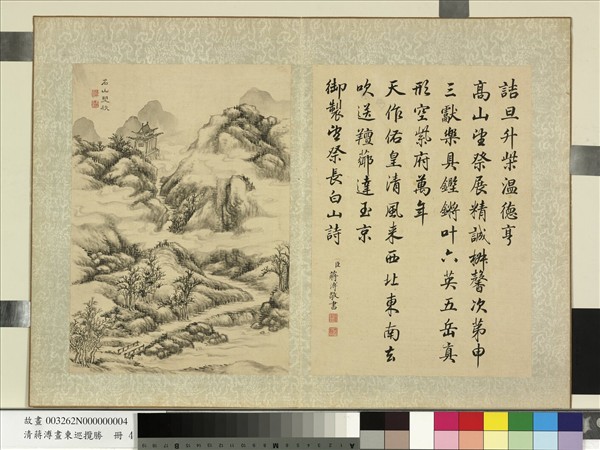 詰旦升柴溫德亨
高山望祭展精誠椒馨次第申
三獻樂具鏗鏘叶六英五岳真
形空紫府萬年
天作佑皇清風來西北東南去
吹送羶薌達玉京
御製望祭長白山詩
臣蔣溥敬書
名山望秩
故畫 003262N000000004
清蔣溥畫東巡攬勝 冊 4